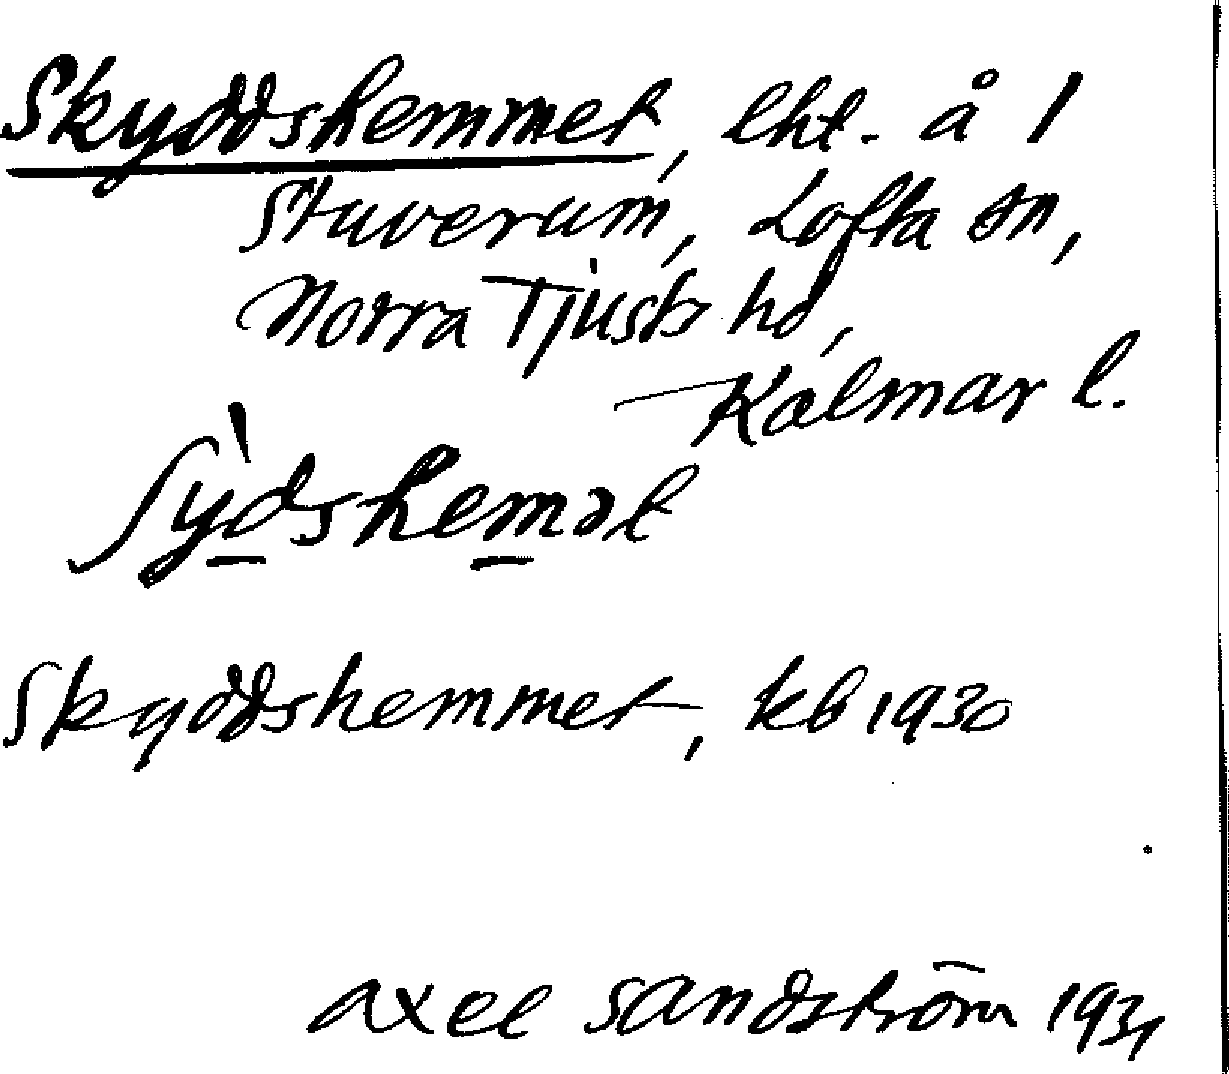 Skyddshemmet, lht. å 1
Stuverum, Lofta sn,
Norra Tjusts hd,
Kalmar l.
ʃỳdshemət
Skyddshemmet, kb 1930
Axel Sandström 1931